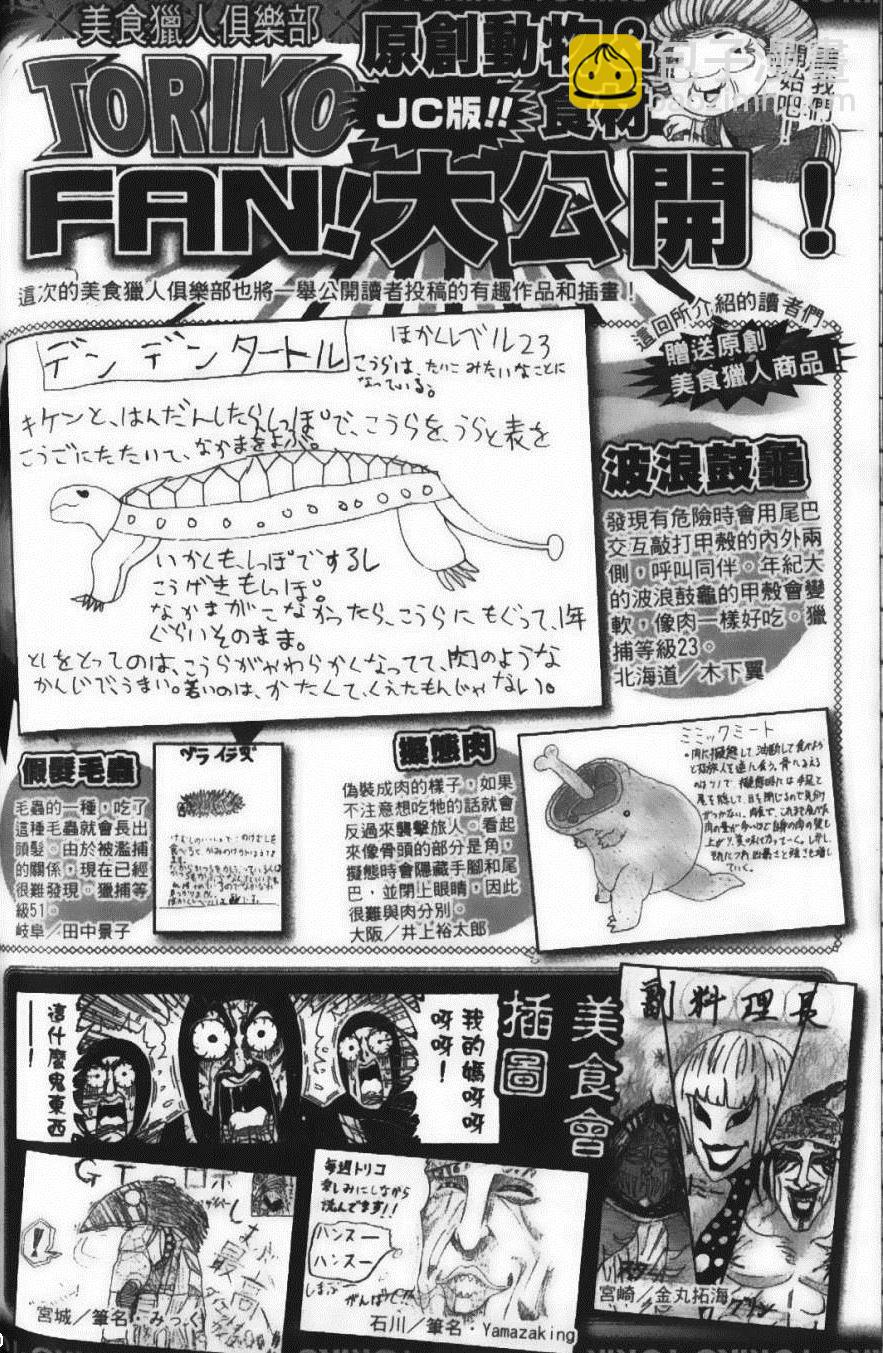 美食獵人俱樂部
TORIKO
FAN!
原創動物&
食材
JC版!!
大公開！
開始吧！
包子漫畫
baozimh.com
這次的美食獵人俱樂部也將一舉公開讀者投稿的有趣作品和插畫！
這回所介紹的讀者們，
贈送原創
美食獵人商品！
デンデンタートル
ほかくレベル23
こうらは、たいこみたいなことに
なっている。
キケンと、はんだんしたら、しっぽで、こうらを、うらと表を
こうごにたたいて、なかまをよぶ。
いかくも、しっぽでするし
こうげきもしっぽ。
なかまがこなかったら、こうらにもぐって、1年
ぐらいそのまま。
としをとってのは、こうらがやわらかくなってて、肉のような
かんじで、うまい。若いのは、かたくて、くえたもんじゃない。
波浪鼓龜
發現有危險時會用尾巴
交互敲打甲殼的內外兩
側，呼叫同伴。年紀大
的波浪鼓龜的甲殼會變
軟，像肉一樣好吃。獵
捕等級23。
北海道／木下翼
假髮毛蟲
毛蟲的一種，吃了
這種毛蟲就會長出
頭髮。由於被濫捕
的關係，現在已經
很難發現。獵捕等
級51。
岐阜／田中景子
擬態肉
偽裝成肉的樣子，如果
不注意想吃牠的話就會
反過來襲擊旅人。看起
來像骨頭的部分是角，
擬態時會隱藏手腳和尾
巴，並閉上眼睛，因此
很難與肉分別。
大阪／井上裕太郎
ミミックミート
美食會
插圖
我的媽呀呀
呀呀！
這什麼鬼東西
——！
副料理長
宮崎／金丸拓海
グリン
GTロボ
宮城／筆名・みっく
毎週トリコ
楽しみにしながら
読んでます！！
バンスー
バンスー
石川／筆名・Yamazaking